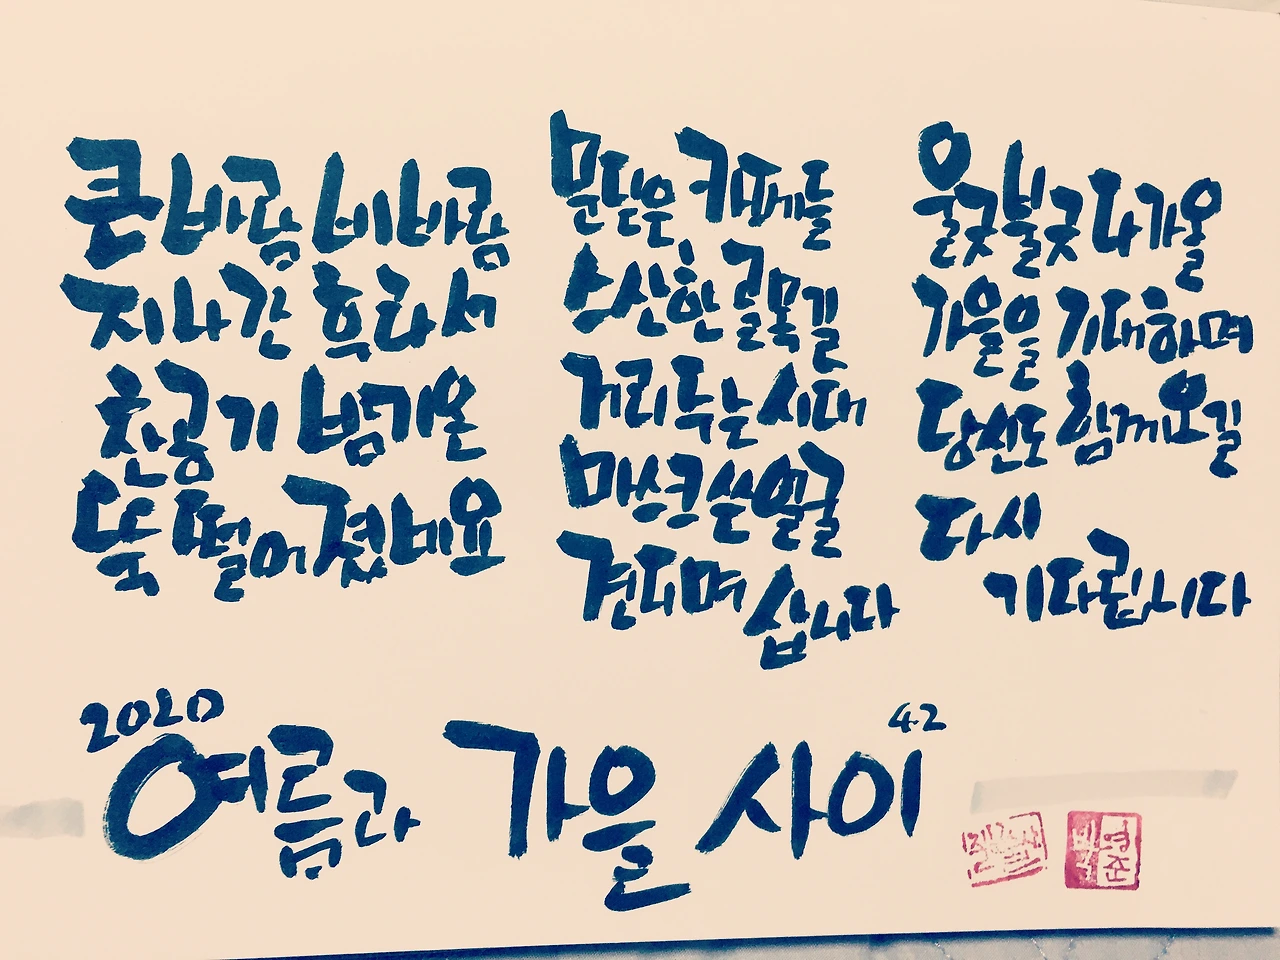 큰바람 비바람
지나간 후라서
찬공기 밤기온
뚝 떨어졌네요
문닫은 카페들
스산한 골목길
거리두는 시대
마스크쓴 얼굴
견디며 삽니다
울긋불긋 다가올
가을을 기대하며
당신도 함께오길
다시
기다립니다
2020
여름과 가을 사이
42